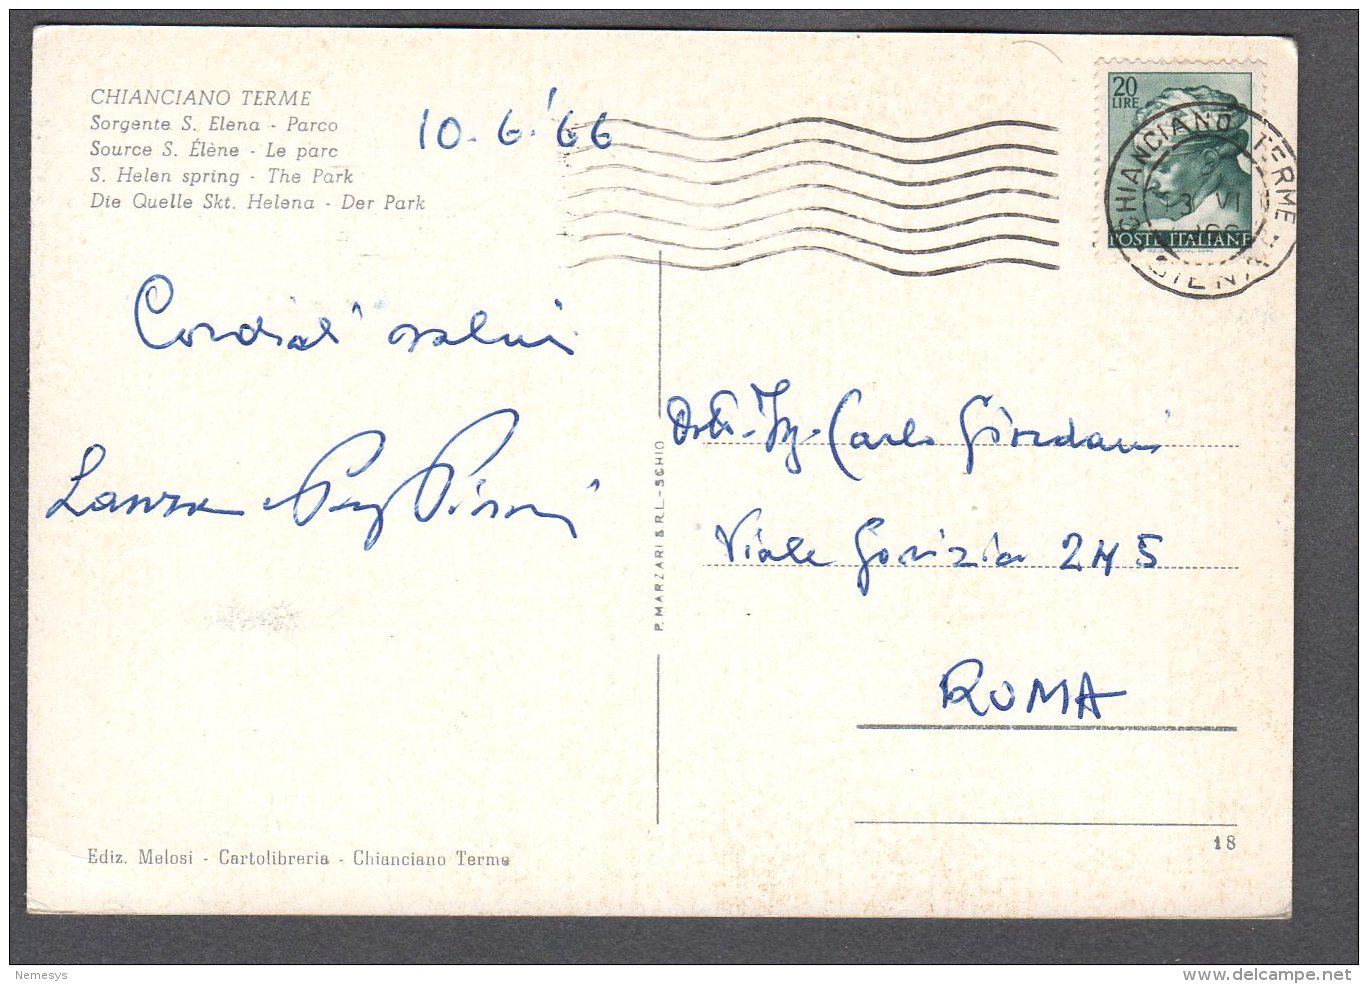 CHIANCIANO TERME
Sorgente S. Elena - Parco
Source S. Élène - Le parc
S. Helen spring - The Park
Die Quelle Skt. Helena - Der Park
10.6.'66
20
LIRE
POSTE ITALIANE
CHIANCIANO TERME
SIENA
Cordiali saluti
Dott. Ing. Carlo Giordani
Viale Gorizia 24 5
ROMA
P. MARZARI S.R.L. - SCHIO
Ediz. Melosi - Cartolibreria - Chianciano Terme
18
Nemesys
www.delcampe.net